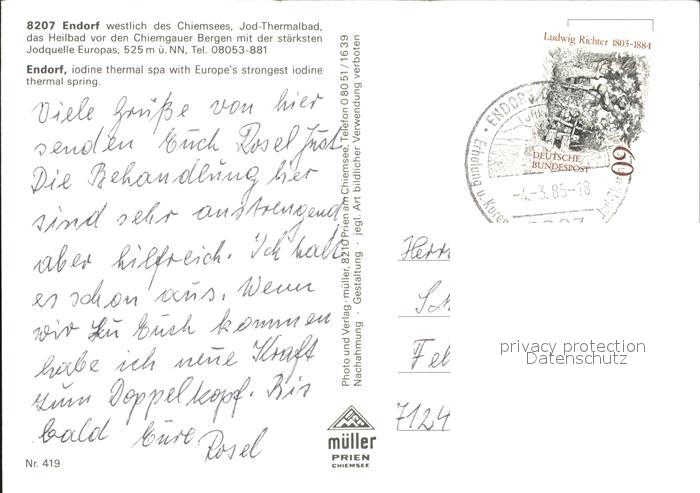 8207 Endorf westlich des Chiemsees, Jod-Thermalbad,
das Heilbad vor den Chiemgauer Bergen mit der stärksten
Jodquelle Europas, 525 m ü. NN, Tel. 08053-881
Endorf, iodine thermal spa with Europe's strongest iodine
thermal spring.
Viele Grüße von hier
senden Euch Rosel Just
Die Behandlung hier
sind sehr anstrengend
aber hilfreich. Ich halt
es schon aus. Wenn
wir zu Euch kommen
habe ich neue Kraft
zum Doppelkopf. Bis
bald Eure Rosel
Nr. 419
Photo und Verlag · müller, 8210 Prien am Chiemsee, Telefon 0 80 51 / 16 39
Nachahmung · Gestaltung · jegl. Art bildlicher Verwendung verboten
müller
PRIEN
CHIEMSEE
Ludwig Richter 1803-1884
DEUTSCHE
BUNDESPOST
60
ENDORF
Erholung u. Kuren
-4.-3.85-18
8207
Herrn
Fel
7124
privacy protection
Datenschutz